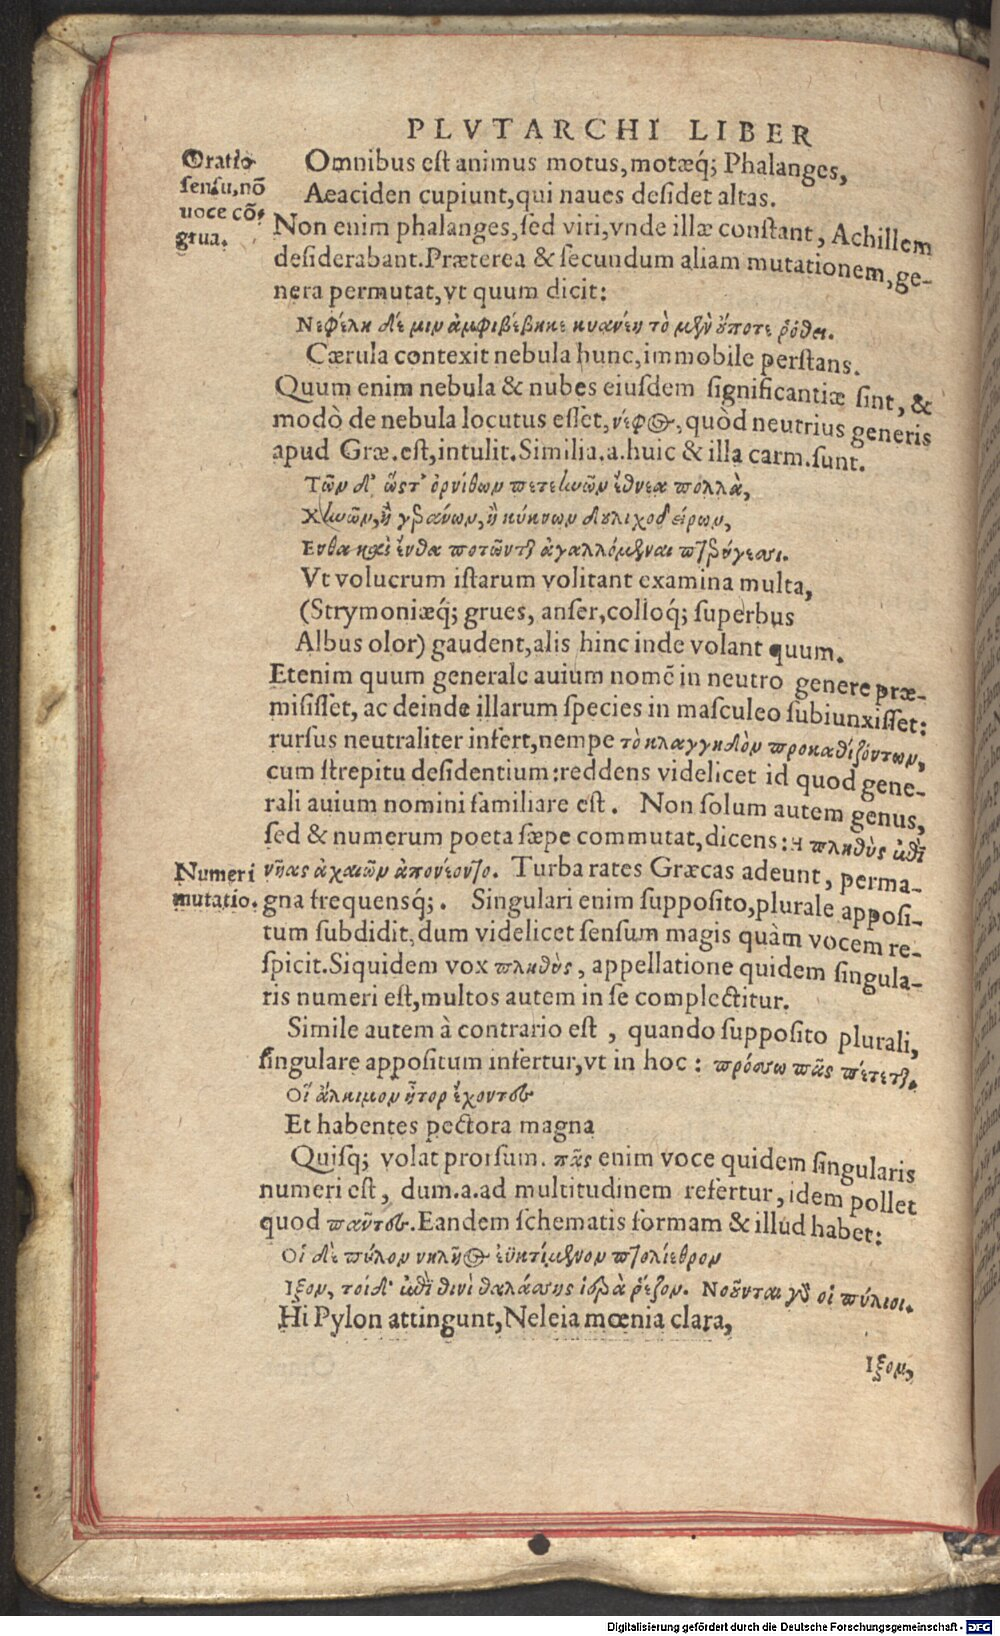 PLVTARCHI LIBER
Oratio
sensu, nō
uoce cō-
grua.
Omnibus est animus motus, motæq́; Phalanges,
Aeaciden cupiunt, qui naues desidet altas.
Non enim phalanges, sed viri, vnde illæ constant, Achillem
desiderabant. Præterea & secundum aliam mutationem, ge-
nera permutat, vt quum dicit:
Νεφέλη δέ μιν ἀμφιβέβηκε κυανέη τὸ μὲν οὔποτε ῥόθει.
Cærula contexit nebula hunc, immobile perstans.
Quum enim nebula & nubes eiusdem significantiæ sint, &
modò de nebula locutus esset, νέφος, quòd neutrius generis
apud Græ. est, intulit. Similia .a. huic & illa carm. sunt.
Τῶν δ' ὥστ' ὀρνίθων πετεηνῶν ἔθνεα πολλὰ,
Χηνῶν, ἢ γεράνων, ἢ κύκνων δουλιχοδείρων,
Ενθα καὶ ἔνθα ποτῶνται ἀγαλλόμεναι πτερύγεσσι.
Vt volucrum istarum volitant examina multa,
(Strymoniæq́; grues, anser, colloq́; superbus
Albus olor) gaudent, alis hinc inde volant quum.
Etenim quum generale auium nomē in neutro genere præ-
misisset, ac deinde illarum species in masculeo subiunxisset:
rursus neutraliter infert, nempe τὸ κλαγγηδὸν προκαθιζόντων,
cum strepitu desidentium: reddens videlicet id quod gene-
rali auium nomini familiare est. Non solum autem genus,
sed & numerum poeta sæpe commutat, dicens: Η πληθὺς ἐπὶ
Numeri
mutatio.
νῆας ἀχαιῶν ἀπονέοντο. Turba rates Græcas adeunt, perma-
gna frequensq́;. Singulari enim supposito, plurale apposi-
tum subdidit, dum videlicet sensum magis quàm vocem re-
spicit. Siquidem vox πληθὺς, appellatione quidem singula-
ris numeri est, multos autem in se complectitur.
Simile autem à contrario est, quando supposito plurali,
singulare appositum infertur, vt in hoc: πρόσσω πᾶς πέτεται.
Οἵ ἄλκιμον ἦτορ ἔχοντες
Et habentes pectora magna
Quisq; volat prorsum. πᾶς enim voce quidem singularis
numeri est, dum .a. ad multitudinem refertur, idem pollet
quod παῦτες. Eandem schematis formam & illud habet:
Οἱ δὲ πύλον νηλῆος ἐϋκτίμενον πτολίεθρον
Ιξον, τοὶ δ' ἐπὶ θινὶ θαλάσσης ἱερὰ ῥέζον. Νοῦνται γὰρ οἱ πύλιοι.
Hi Pylon attingunt, Neleia mœnia clara,
Ιξον,
Digitalisierung gefördert durch die Deutsche Forschungsgemeinschaft - DFG